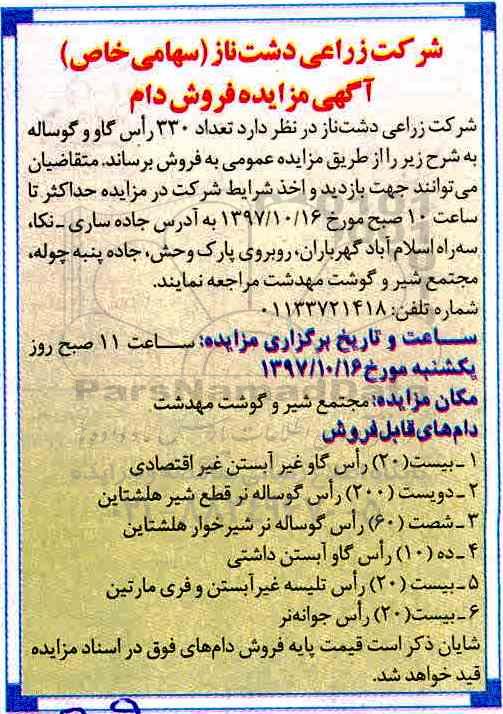 شرکت زراعی دشت‌ناز (سهامی خاص)
آگهی مزایده فروش دام
شرکت زراعی دشت‌ناز در نظر دارد تعداد ۳۳۰ رأس گاو و گوساله
به شرح زیر را از طریق مزایده عمومی به فروش برساند. متقاضیان
می‌توانند جهت بازدید و اخذ شرایط شرکت در مزایده حداکثر تا
ساعت ۱۰ صبح مورخ ۱۳۹۷/۱۰/۱۶ به آدرس جاده ساری ـ نکا،
سه‌راه اسلام آباد گهرباران، روبروی پارک وحش، جاده پنبه چوله،
مجتمع شیر و گوشت مهدشت مراجعه نمایند.
شماره تلفن: ۰۱۱۳۳۷۲۱۴۱۸
ساعت و تاریخ برگزاری مزایده: ساعت ۱۱ صبح روز
یکشنبه مورخ ۱۳۹۷/۱۰/۱۶
ParsNamadData
مکان مزایده: مجتمع شیر و گوشت مهدشت
دام‌های قابل فروش
۱ ـ بیست (۲۰) رأس گاو غیر آبستن غیر اقتصادی
۲ ـ دویست (۲۰۰) رأس گوساله نر قطع شیر هلشتاین
۳ ـ شصت (۶۰) رأس گوساله نر شیرخوار هلشتاین
۴ ـ ده (۱۰) رأس گاو آبستن داشتی
۵ ـ بیست (۲۰) رأس تلیسه غیرآبستن و فری مارتین
۶ ـ بیست (۲۰) رأس جوانه‌نر
شایان ذکر است قیمت پایه فروش دام‌های فوق در اسناد مزایده
قید خواهد شد.